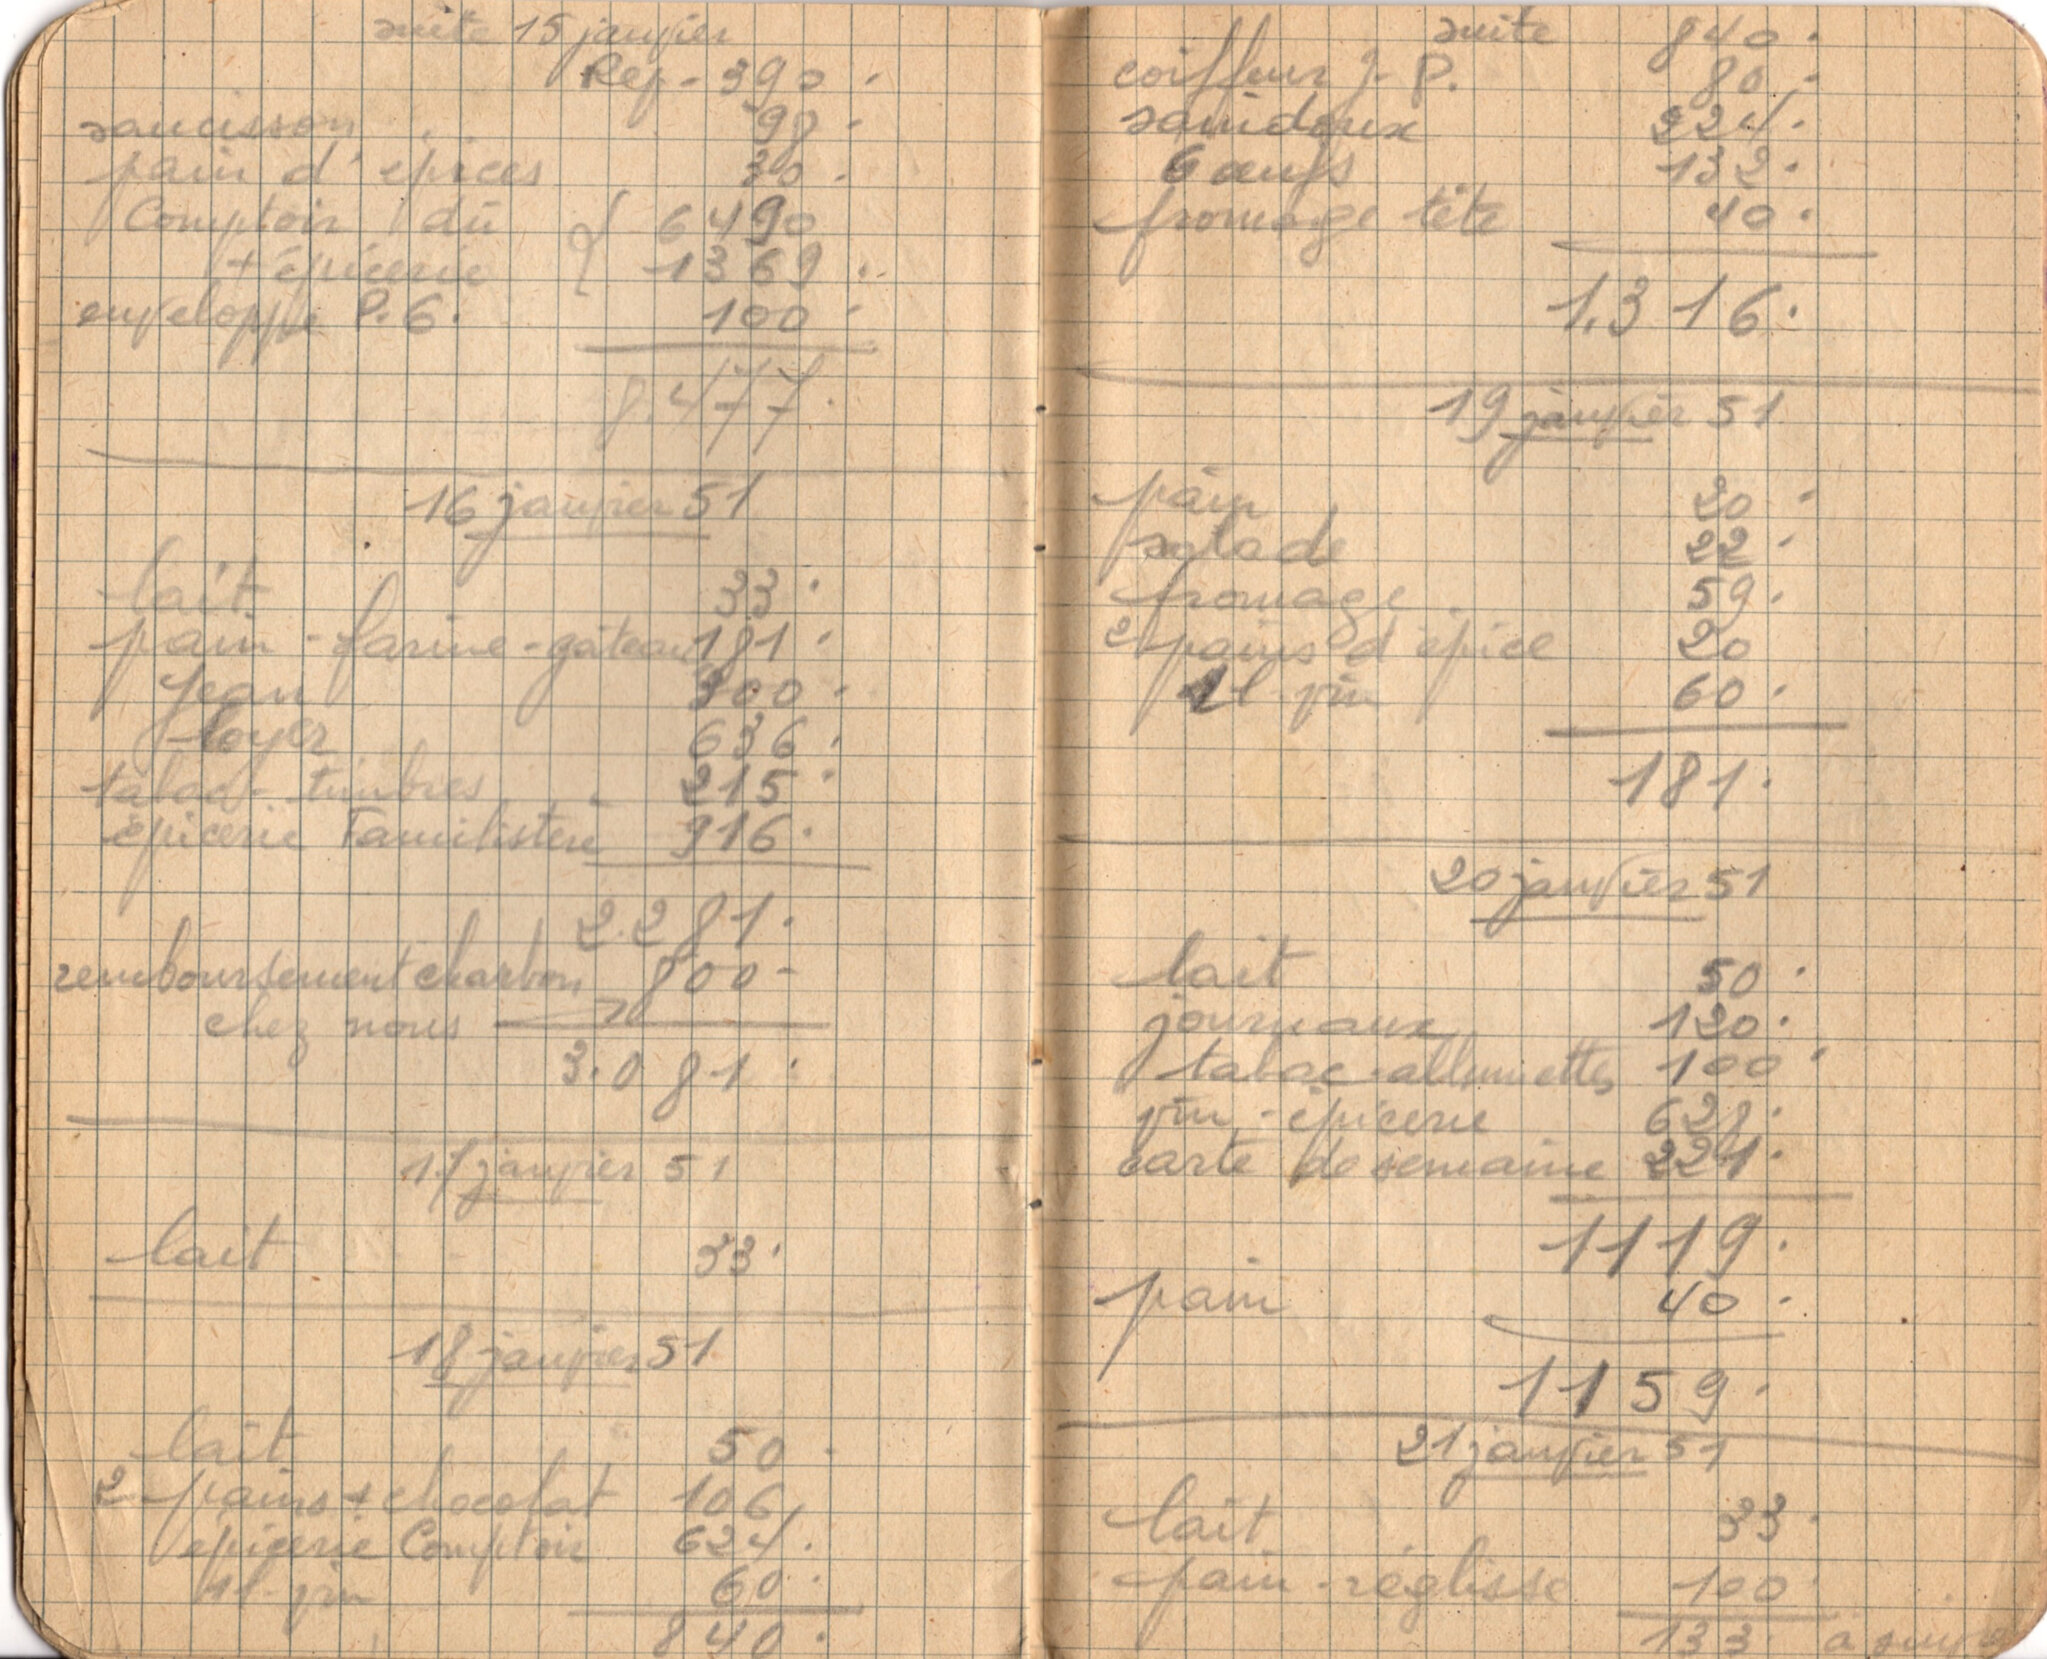 suite 15 janvier
Rep - 390.
saucisson 98.
pain d'epices 30.
Comptoir dû { 6490
+ épicerie { 1369.
enveloppe P.G. 100.
8.477.
16 janvier 51
lait 33.
pain - farine - gâteau 181.
Jean 300.
loyer 636.
tabac - timbres 215.
épicerie Familistère 916.
2.281.
remboursement charbon 800 -
chez nous
3.081.
17 janvier 51
lait 33.
18 janvier 51
lait 50.
2 pains + chocolat 106
épicerie Comptoir 624.
1 l. vin 60.
840.
suite 840.
coiffeur J. P. 80.
saindoux 224.
6 œufs 132.
fromage tête 40.
1.316.
19 janvier 51
pain 20.
salade 22.
fromage 59.
2 pains d'épice 20
1 l. vin 60.
181.
20 janvier 51
lait 50.
journaux 120.
tabac - allumettes 100.
vin - épicerie 628.
carte de semaine 221.
1119.
pain 40.
1159.
21 janvier 51
lait 33.
pain - réglisse 100.
133. à suivre